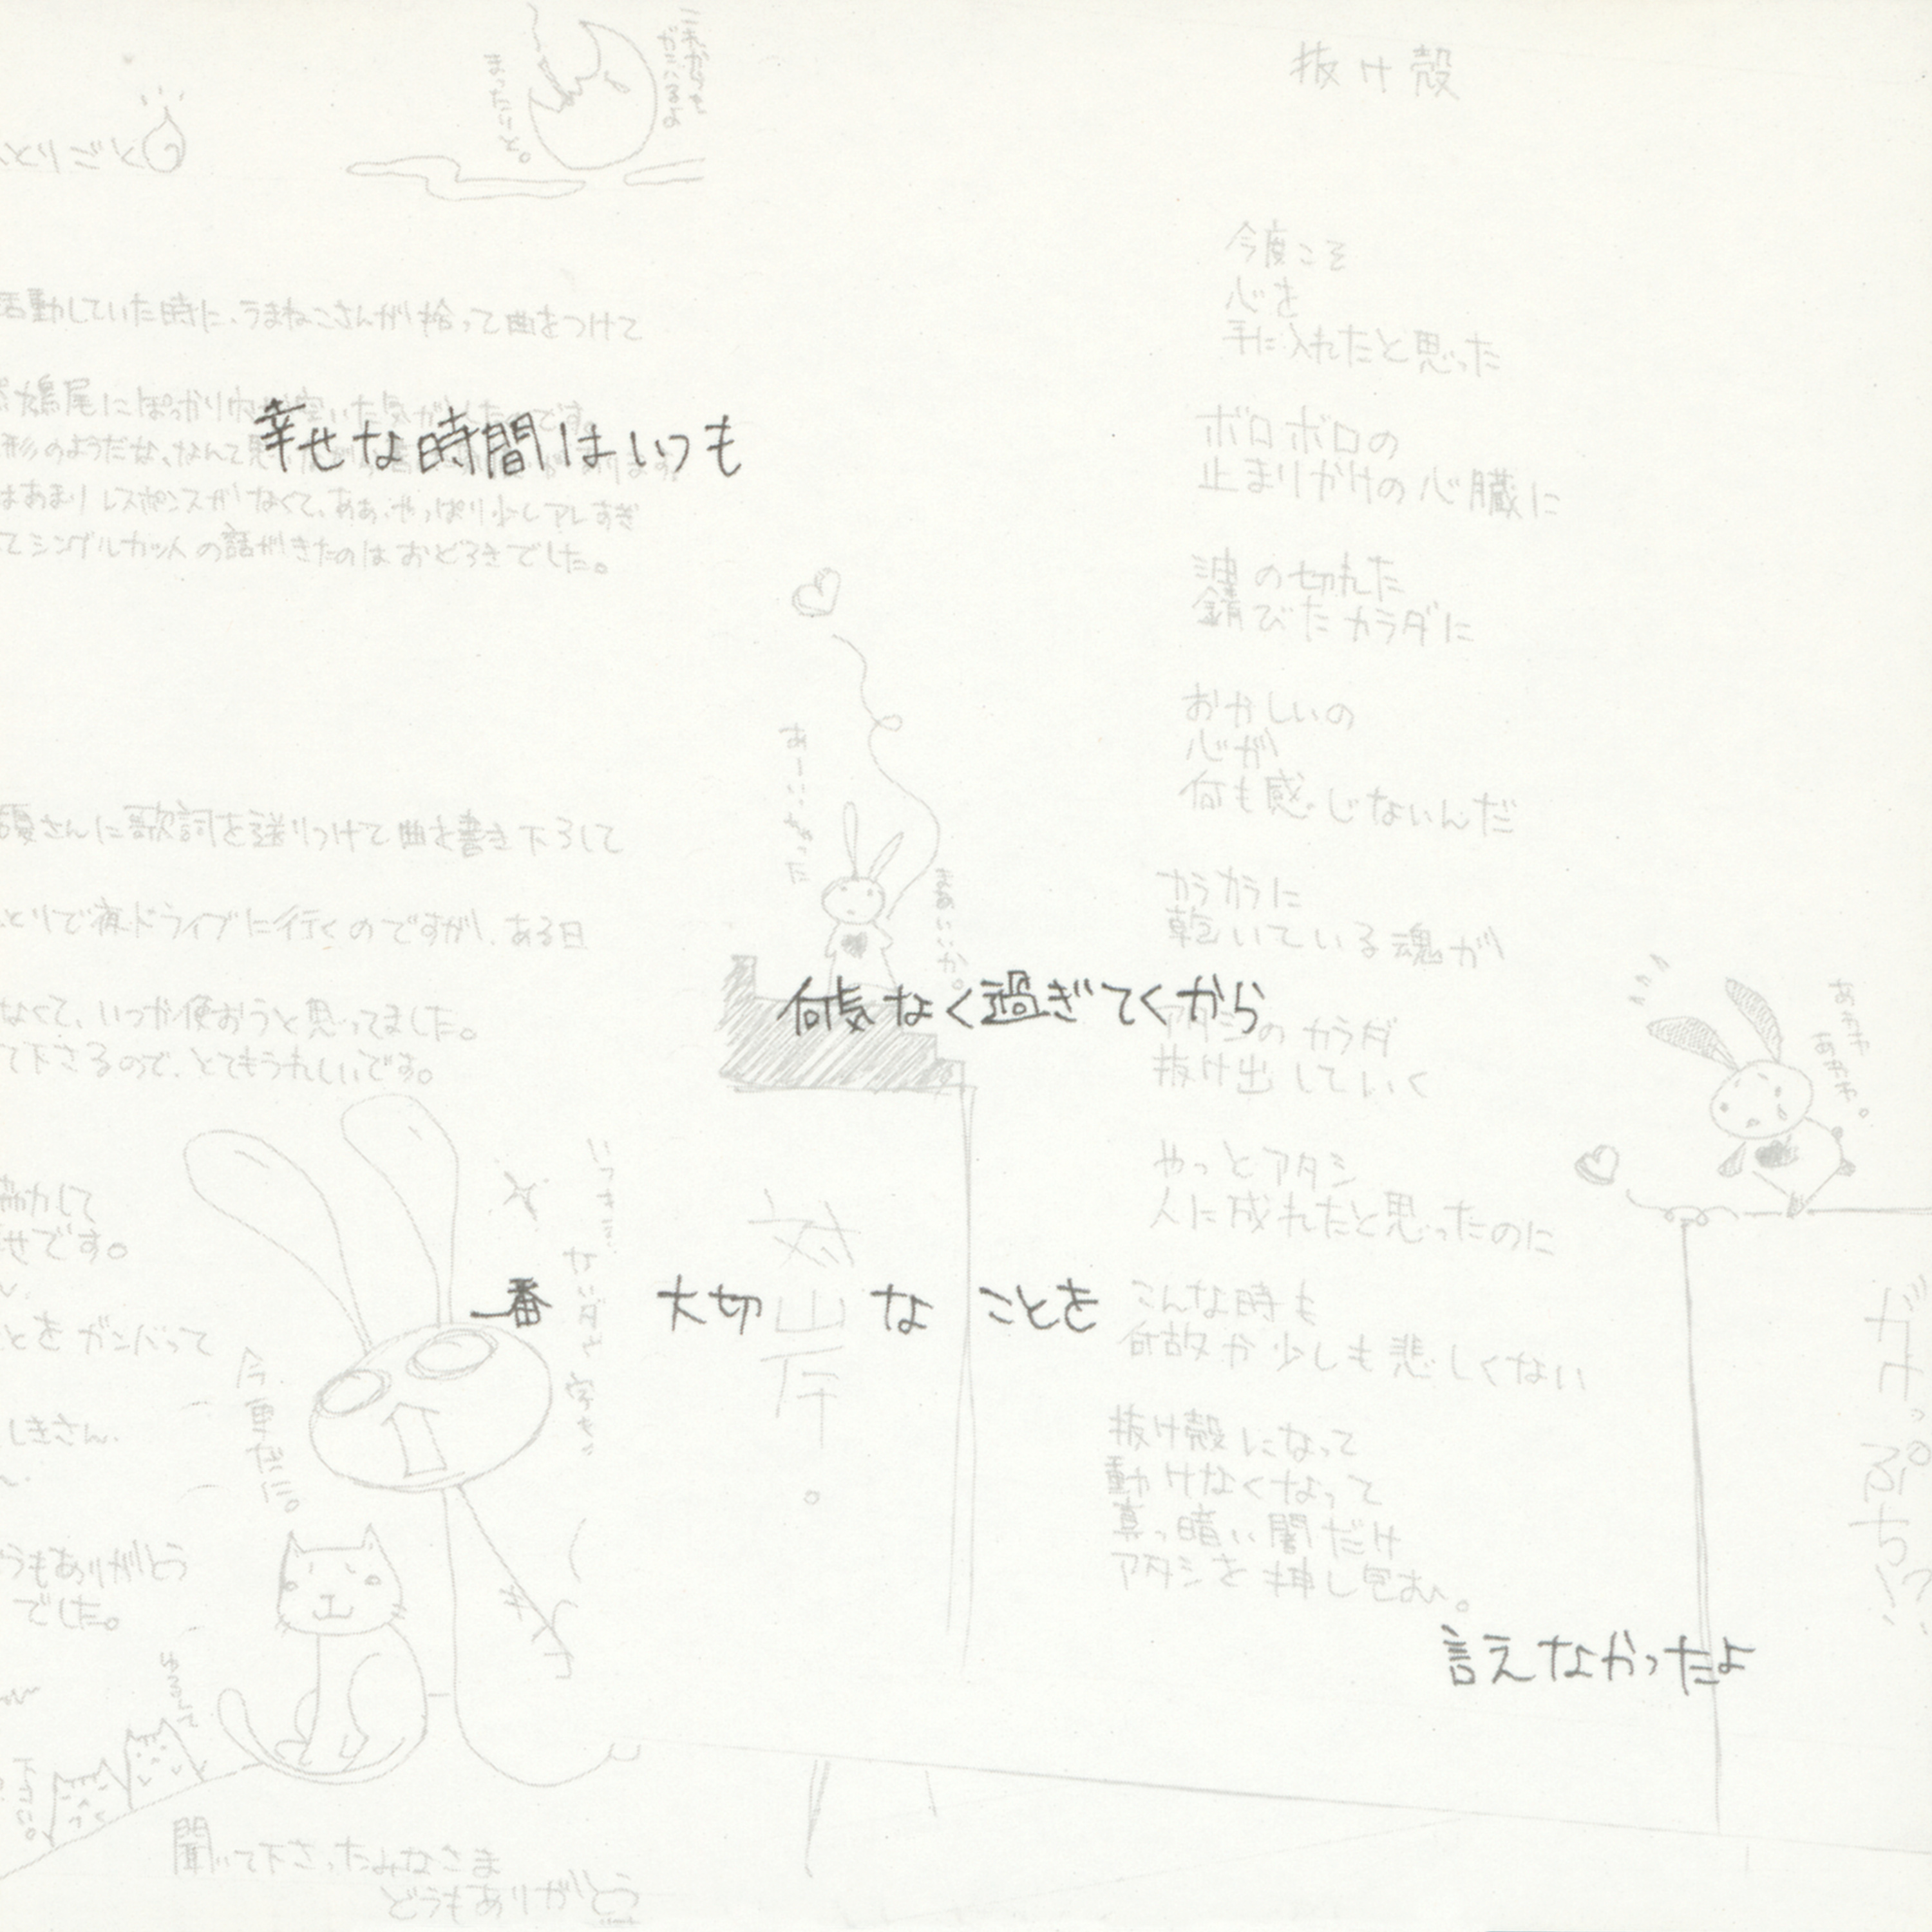 幸せな時間はいつも
何気なく過ぎてくから
一番 大切 な ことを
言えなかったよ
抜け殻
今度こそ
心を
手に入れたと思った
ボロボロの
止まりかけの心臓に
油の切れた
錆びたカラダに
おかしいの
心が
何も感じないんだ
カラカラに
乾いている魂が
アタシのカラダ
抜け出していく
やっとアタシ
人に成れたと思ったのに
こんな時も
何故か少しも悲しくない
抜け殻になって
動けなくなって
真っ暗い闇だけ
アタシを押し包む。
とりごと
これからも
がんばるよ
まったりと。
活動していた時に、うまねこさんが拾って曲をつけて
鳩尾にぽっかり穴が空いた気がしたのです。
形のようだな、なんて思
はあまりレスポンスがなくて、ああ、やっぱり少しアレすぎ
てシングルカットの話がきたのはおどろきでした。
さんに歌詞を送りつけて曲を書き下ろして
とりで夜ドライブに行くのですが、ある日
なくて、いつか使おうと思ってました。
て下さるので、とてもうれしいです。
協力して
せです。
とをガンバって
しきさん、
うもありがとう
でした。
あーいっちゃった
まあいいか。
今更だに。
ゆるして
下さい。
聞いて下さったみなさま
どうもありがとう
あわわ
あわわ。